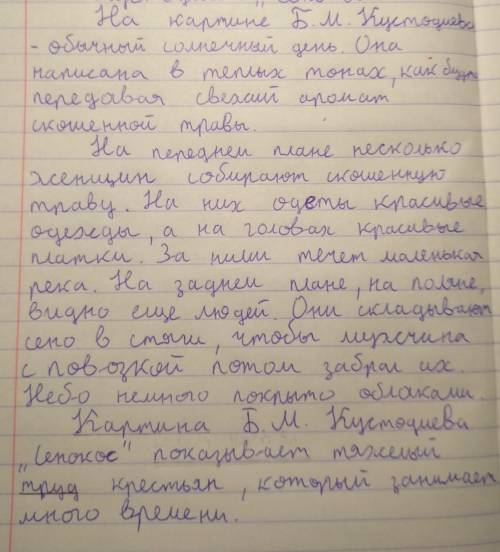 На картине Б. М. Кустодиева
- обычный солнечный день. Она
написана в теплых тонах, как будто
передавая свежий аромат
скошенной травы.
На переднем плане несколько
женщин собирают скошенную
траву. На них одеты красивые
одежды, а на головах красивые
платки. За ними течет маленькая
река. На заднем плане, на поляне,
видно еще людей. Они складывают
сено в стоги, чтобы мужчина
с повозкой потом забрал их.
Небо немного покрыто облаками.
Картина Б. М. Кустодиева
"Сенокос" показывает тяжелый
труд крестьян, который занимает
много времени.